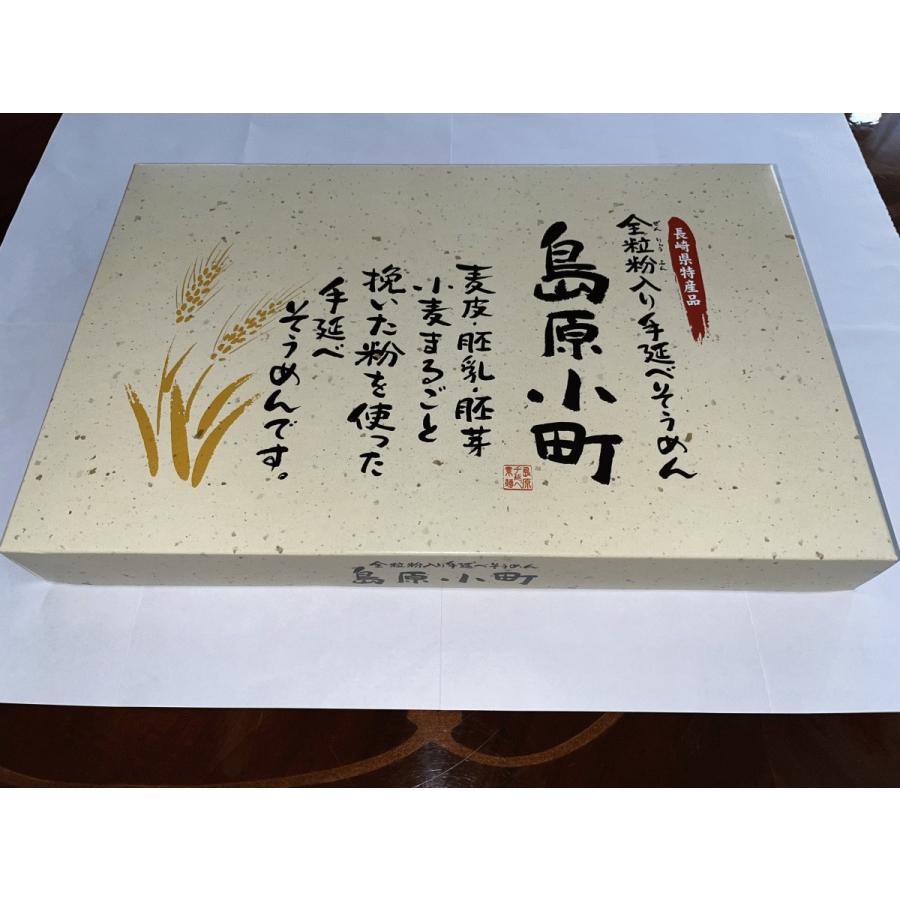 長崎県特産品
全粒粉入り手延べそうめん
ぜんりゅうふん
島原小町
麦皮・胚乳・胚芽
小麦まるごと
挽いた粉を使った
手延べ
そうめんです。
島原
手延べ
素麺
全粒粉入り手延べそうめん
島原小町